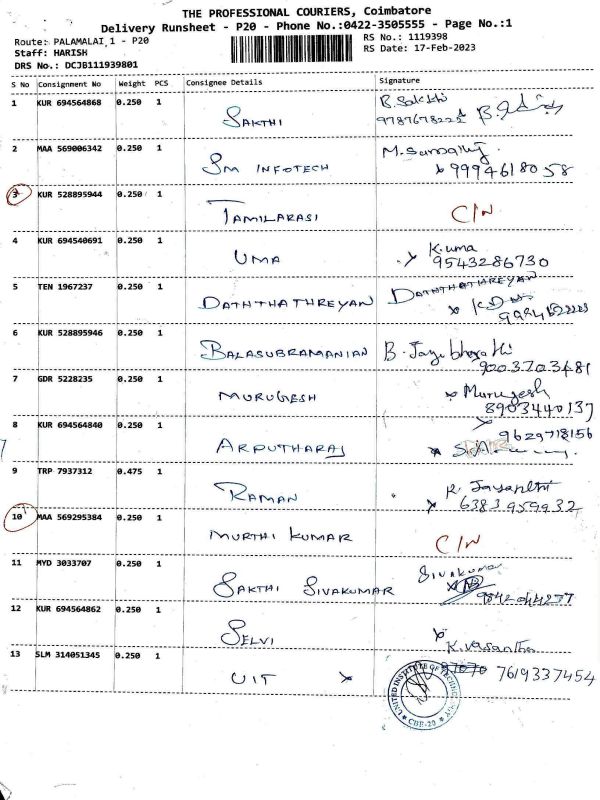 THE PROFESSIONAL COURIERS, Coimbatore
Delivery Runsheet - P20 - Phone No.:0422-3505555 - Page No.:1
Route: PALAMALAI 1 - P20
RS No.: 1119398
Staff: HARISH
RS Date: 17-Feb-2023
DRS No.: DCJB111939801
S No Consignment No Weight PCS Consignee Details Signature
1 KUR 694564868 0.250 1 SAKTHI B. Sakthi
2 MAA 569006342 0.250 1 SM INFOTECH
9994618058
3 KUR 528895944 0.250 1 TAMILARASI C/N
4 KUR 694540691 0.250 1 UMA K.uma
9543286730
5 TEN 1967237 0.250 1 DATHTHATHREYAN DATHTHATHREYAN
6 KUR 528895946 0.250 1 BALASUBRAMANIAN B. Jayabharathi
9003703681
7 GDR 5228235 0.250 1 MURUGESH Murugesh
8903440137
8 KUR 694564840 0.250 1 ARPUTHARAJ 9629718156
9 TRP 7937312 0.475 1 RAMAN R. Jayanthi
6383959932
10 MAA 569295384 0.250 1 MURTHI KUMAR C/N
11 MYD 3033707 0.250 1 SAKTHI SIVAKUMAR SIVAKUMAR
9842044277
12 KUR 694564862 0.250 1 SELVI K. Vasantha
13 SLM 314051345 0.250 1 UIT 97070 7619337454
UNITED INSTITUTE OF TECHNOLOGY
CBE-20